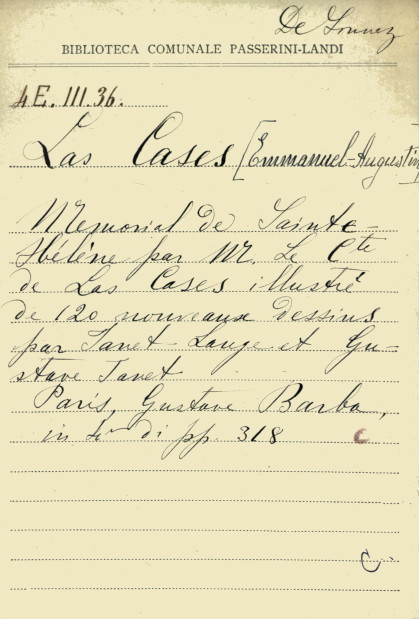 De
BIBLIOTECA COMUNALE PASSERINI-LANDI
4E. III. 36.
Las Cases [Emmanuel-Augustin]
Memorial de Sainte-
Hélène par M. Le Cte
de Las Cases illustré
de 120 nouveaux dessins
par Janet-Lange et Gu-
stave Janet
Paris, Gustave Barba,
in 4° di pp. 318
C
C